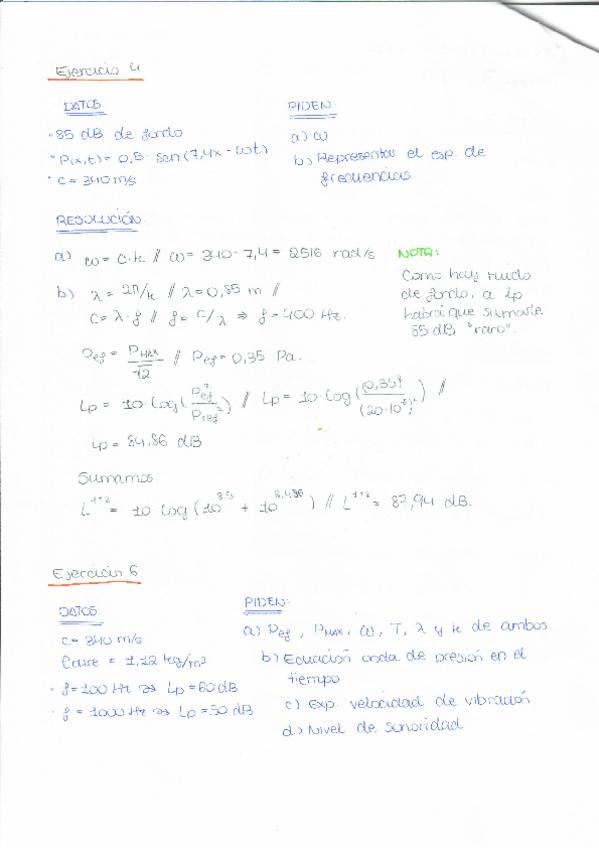 Ejercicio 4
DATOS
· 85 dB de fondo
· P(x,t) = 0,5 · sen(7,4x - ωt)
· c = 340 m/s
PIDEN:
a) ω
b) Representar el esp. de
frecuencias
RESOLUCIÓN
a) ω = c·k // ω = 340 · 7,4 = 2516 rad/s
b) λ = 2π/k // λ = 0,85 m //
c = λ · f // f = c/λ ⇒ f = 400 Hz.
NOTA:
Como hay ruido
de fondo, a Lp
habrá que sumarle
85 dB "raro".
Pef = PMAX/√2 // Pef = 0,35 Pa.
Lp = 10 · log(Pef²/Pref²) // Lp = 10 · log(0,35²/(20·10⁻⁶)²) //
Lp = 84,86 dB
Sumamos:
L¹⁺² = 10 log(10^8,5 + 10^8,486) // L¹⁺² = 87,94 dB.
Ejercicio 6
DATOS:
c = 340 m/s
Caire = 1,12 kg/m³
· f = 100 Hz ⇒ Lp = 60 dB
· f = 1000 Hz ⇒ Lp = 50 dB
PIDEN:
a) Pef, PMAX, ω, T, λ y k de ambos
b) Ecuación onda de presión en el
tiempo
c) Exp. velocidad de vibración
d) Nivel de sonoridad